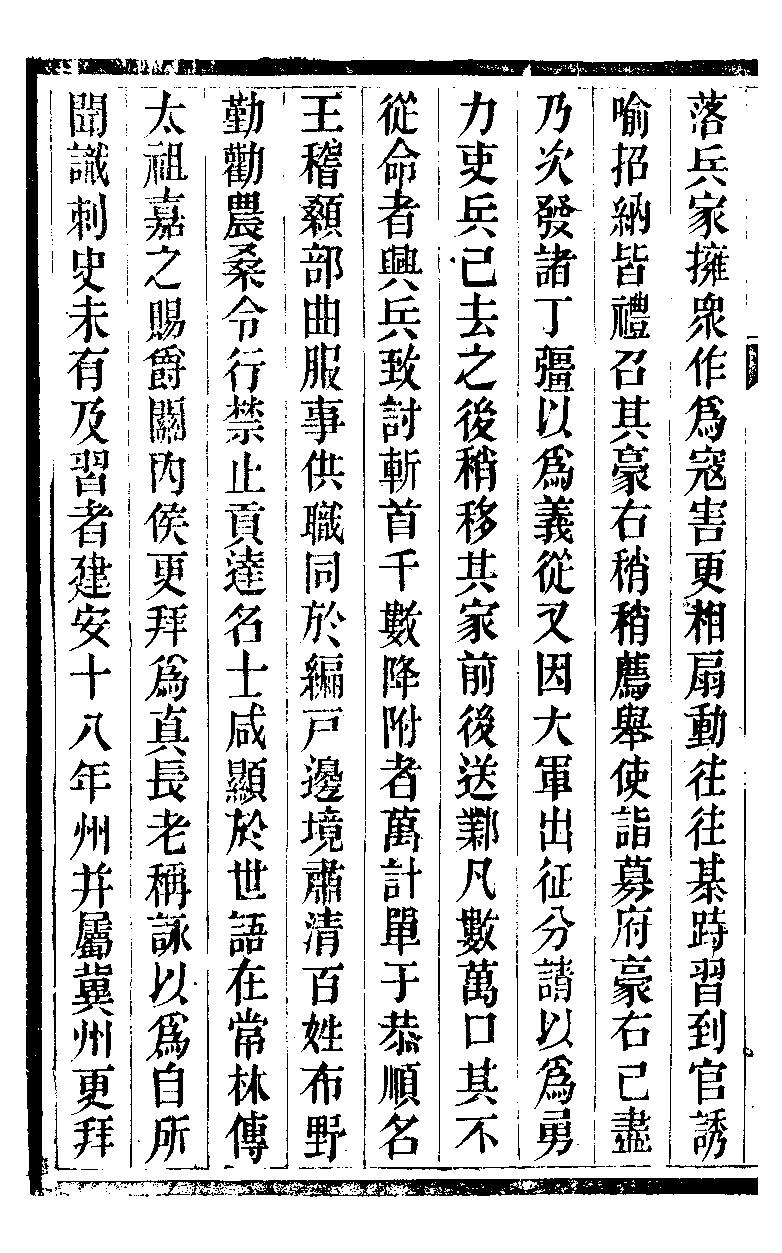 落兵家擁衆作爲寇害更相扇動往往棊跱習到官誘
喻招納皆禮召其豪右稍稍薦舉使詣募府豪右已盡
乃次發諸丁彊以爲義從又因大軍出征分請以爲勇
力吏兵已去之後稍移其家前後送鄴凡數萬口其不
從命者興兵致討斬首千數降附者萬計單于恭順名
王稽顙部曲服事供職同於編戸邊境肅清百姓布野
勤勸農桑令行禁止貢達名士咸顯於世語在常林傳
太祖嘉之賜爵關內侯更拜爲真長老稱詠以爲自所
聞識刺史未有及習者建安十八年州并屬冀州更拜